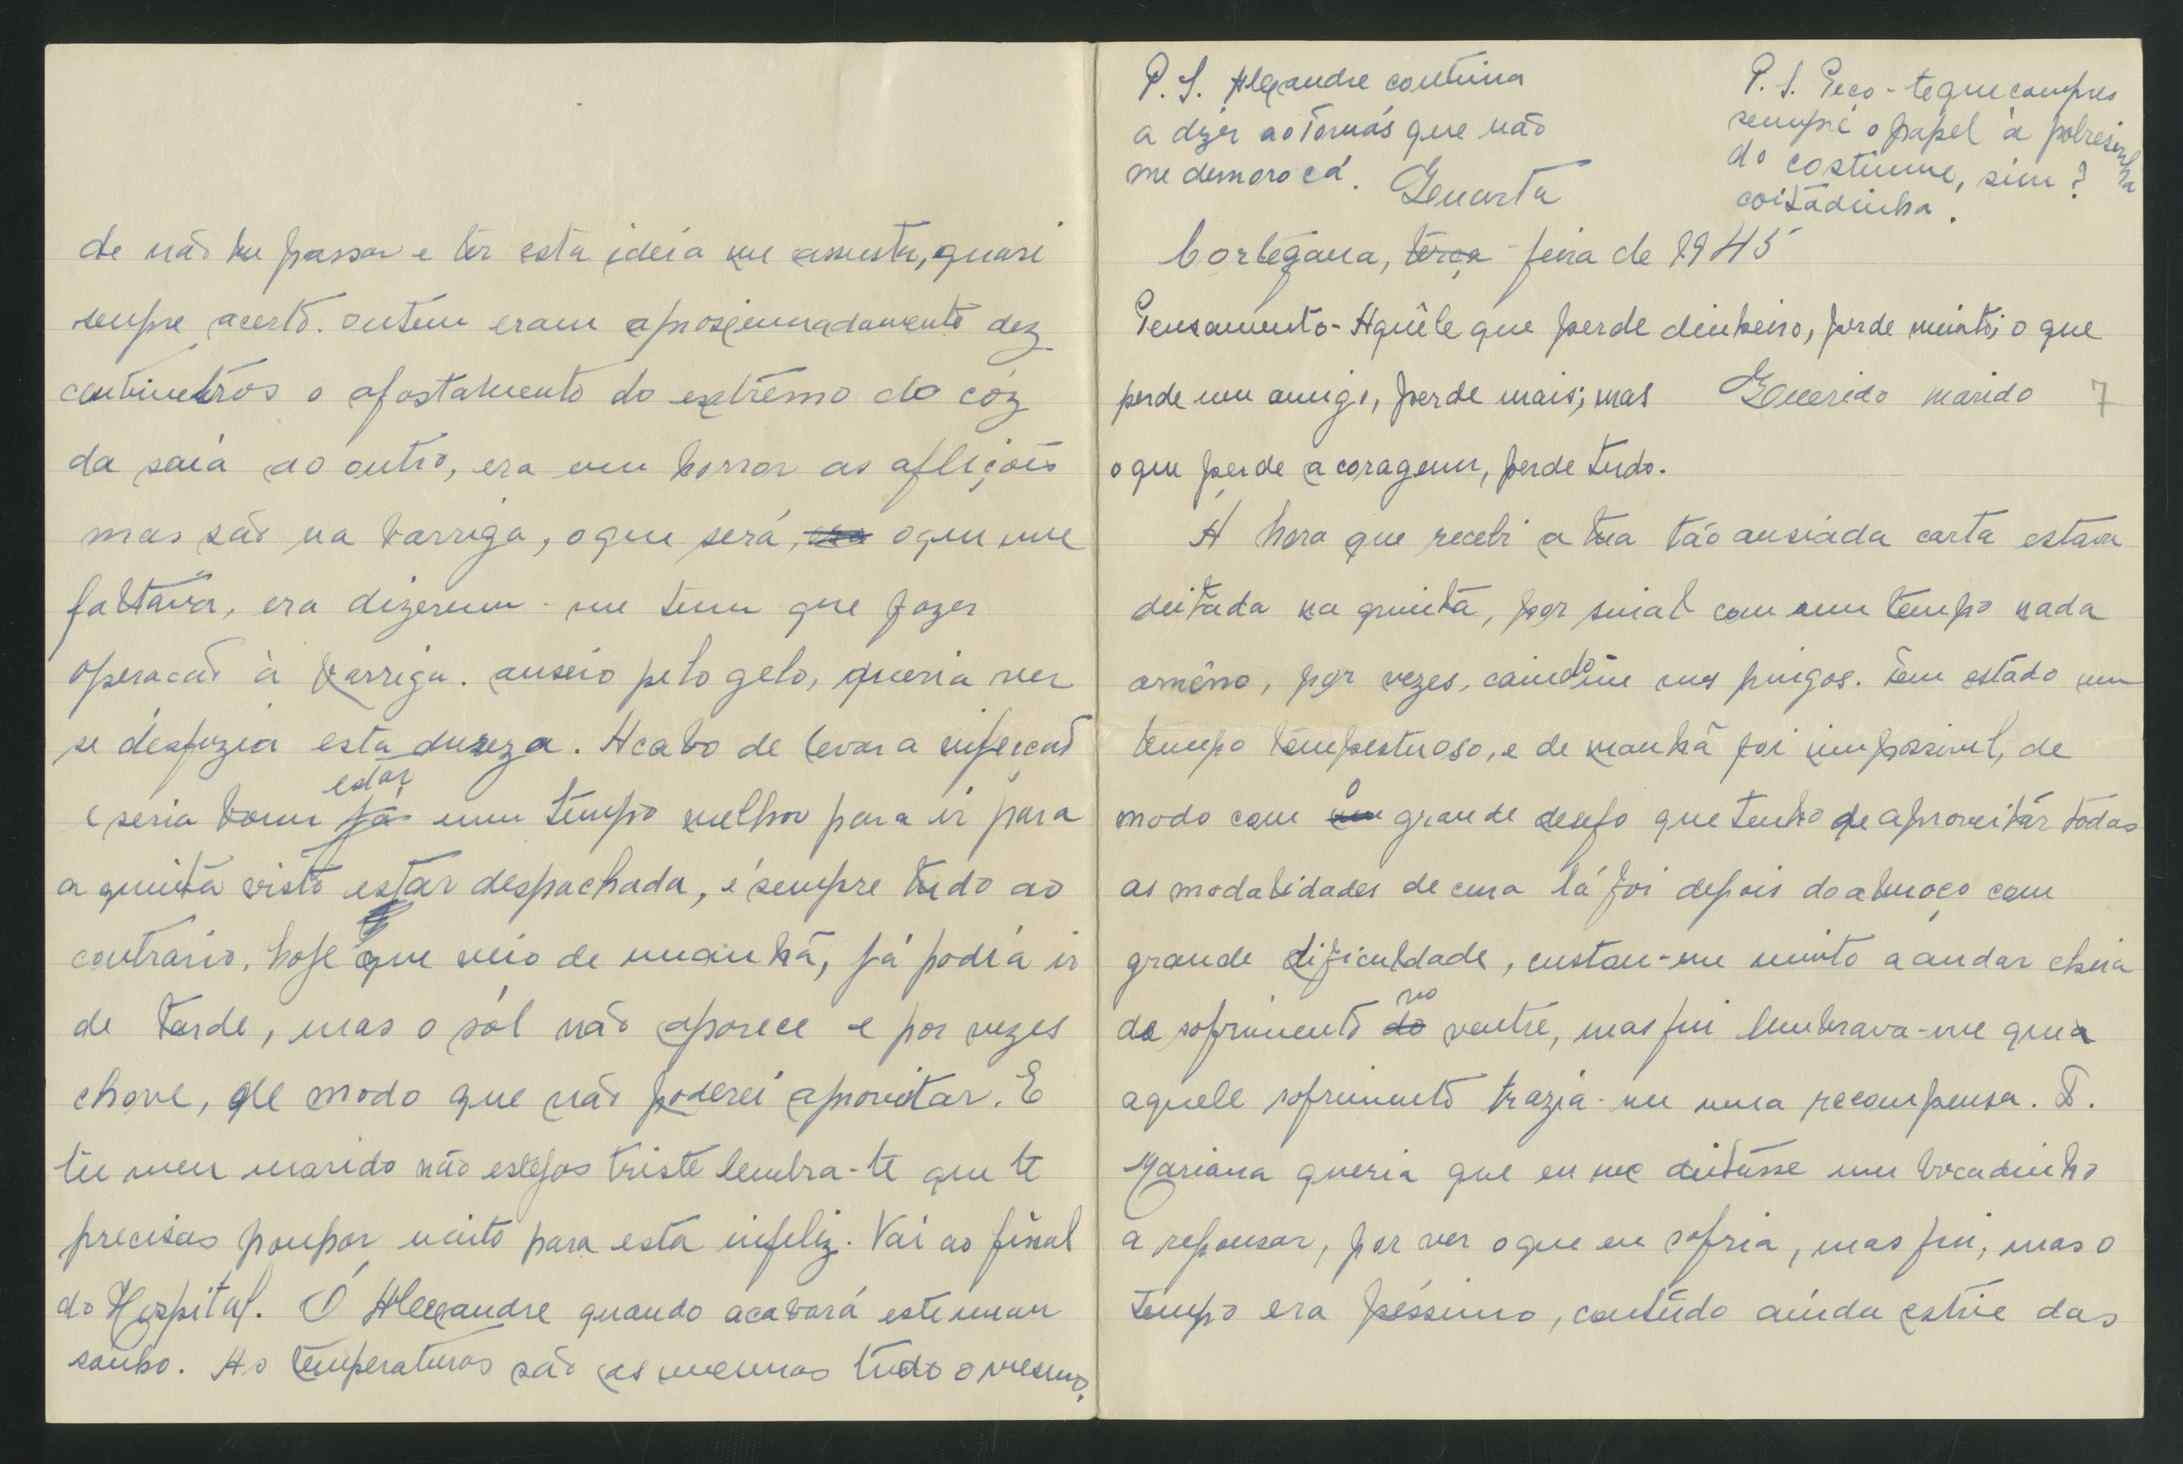 P. S. Alexandre continua
a dizer ao Tomás que não
me demoro cá.
P. S. Peço-te que compres
sempre o papel à pobresinha
do costume, sim?
coitadinha.
Quarta
Cortegana, terça-feira de 1945
Pensamento - Aquêle que perde dinheiro, perde muito; o que
perde um amigo, perde mais; mas
Querido marido 7
o que perde a coragem, perde tudo.
Á hora que recebi a tua tão ansiada carta estava
deitada na quinta, por sinal com um tempo nada
amêno, por vezes, caindo uns pingos. Tem estado um
tempo tempestuoso, e de manhã foi impossivel, de
modo com o grande desejo que tenho de aproveitár todas
as modalidades de cura lá foi depois do almoço com
grande dificuldade, custou-me muito a andar cheia
de sofrimento do no ventre, mas fui lembrava-me que a
aquele sofrimento trazia-me uma recompensa. D.
Mariana queria que eu me deitasse um bocadinho
a repousar, por ver o que eu sofria, mas fui, mas o
tempo era péssimo, contudo ainda estive das
de não me passar e ter esta ideia me assusta, quasi
sempre acerto. ontem eram aprosiemadamente dez
centimetros o afastamento do extremo do cóz
da saia ao outro, era um horror as aflições
mas são na barriga, o que será, o que me
faltava, era dizerem-me tem que fazer
operação à barriga. anseio pelo gelo, queria ver
se desfazia esta dureza. Acabo de levar a injecão
e seria bom já estar um tempo melhor para ir para
a quinta visto estar despachada, é sempre tudo ao
contrario, hoje que veio de manhã, já podia ir
de tarde, mas o sól não aparece e por vezes
chove, de modo que não poderei aproveitar. E
tu meu marido não estejas triste lembra-te que te
precisas poupar muito para esta infeliz. Vai ao final
do Hospital. Ó Alexandre quando acabará este mau
sonho. As temperaturas são as mesmas tudo o mesmo.